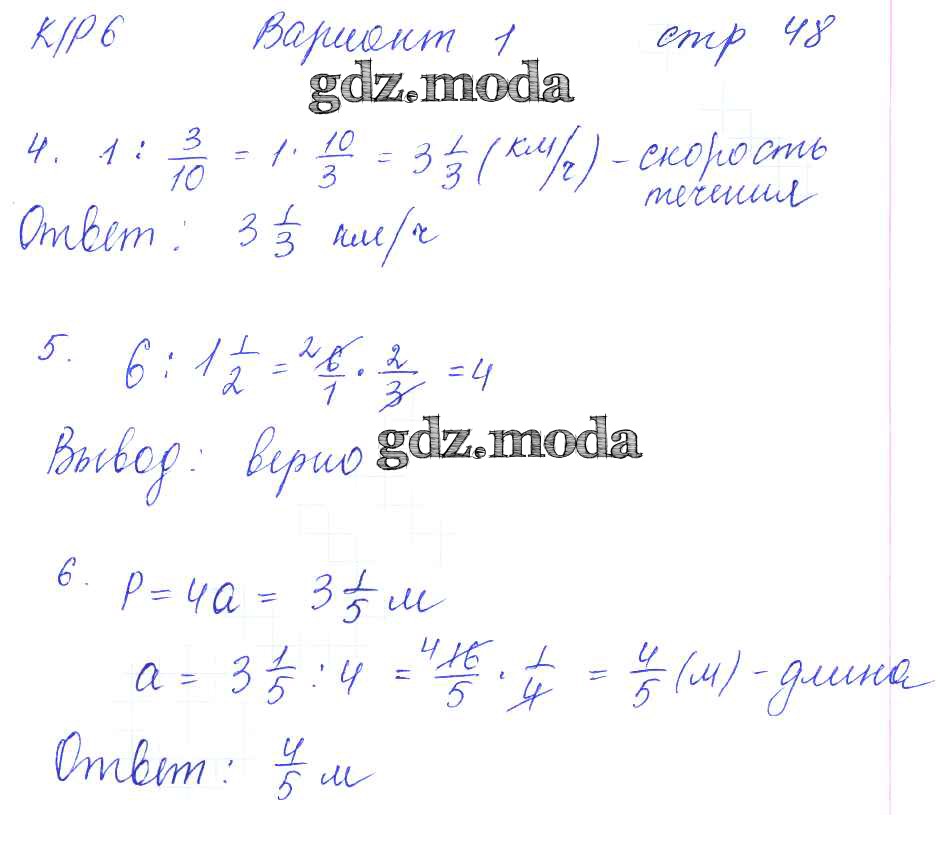 К/Р 6 Вариант 1 стр 48
gdz.moda
4. 1 : 3/10 = 1 · 10/3 = 3 1/3 (км/ч) - скорость
течения
Ответ: 3 1/3 км/ч
5. 6 : 1 1/2 = 2 6/1 · 2/3 = 4
Вывод: верно
gdz.moda
6. P = 4a = 3 1/5 м
a = 3 1/5 : 4 = 4 16/5 · 1/4 = 4/5 (м) - длина
Ответ: 4/5 м